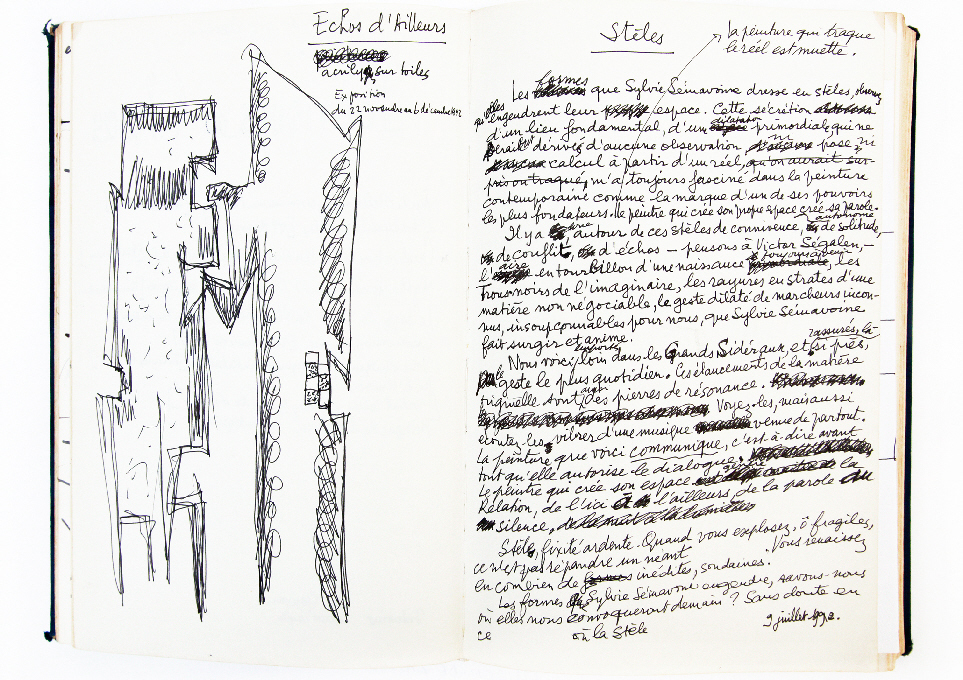 Echos d'Ailleurs
acryliq sur toiles
Exposition
du 22 novembre au 6 décembre 1992
Stèles
La peinture qui traque
le réel est muette.
Les formes que Sylvie Sémavoine dresse en stèles,
qu'elles engendrent leur espace. Cette sécrétion
d'un lieu fondamental, d'un dilatation primordiale qui ne
serait dérivée d'aucune observation, pose ni
calcul à partir d'un réel, qu'on aurait sur-
pris ou traqué, m'a toujours fasciné dans la peinture
contemporaine comme la marque d'un de ses pouvoirs
les plus fondateurs. Le peintre qui crée son propre espace crée sa parole
autonome.
Il y a une autour de ces stèles de connivence, de solitude,
de conflit, d'échos – pensons à Victor Ségalen, –
l'aire en tourbillon d'une naissance toujours primordiale, Les
trous noirs de l'imaginaire, les rayures en strates d'une
matière non négociable, le geste dilaté de marcheurs incon-
nus, insoupçonnables pour nous, que Sylvie Sémavoine
fait surgir et anime.
rassurés, là
Nous voici loin dans les Grands Sidéraux, et si près,
geste le plus quotidien. Ces élancements de la matière
originelle sont des pierres de résonance.
Voyez-les, mais aussi
écoutez-les vibrer d'une musique venue de partout.
La peinture que voici communique, c'est-à-dire avant
tout qu'elle autorise le dialogue.
Le peintre qui crée son espace la
Relation, de l'ici à l'ailleurs, de la parole au
silence, de la nuit à la lumière
Stèles, fixité ardente. Quand vous explosez, ô fragiles,
ce n'est pas répandre un néant. Vous renaissez
en combien de formes inédites, soudaines.
Les formes que Sylvie Sémavoine engendre, savons-nous
où elles nous convoqueront demain ? Sans doute en
ce où la Stèle
9 juillet 1992.